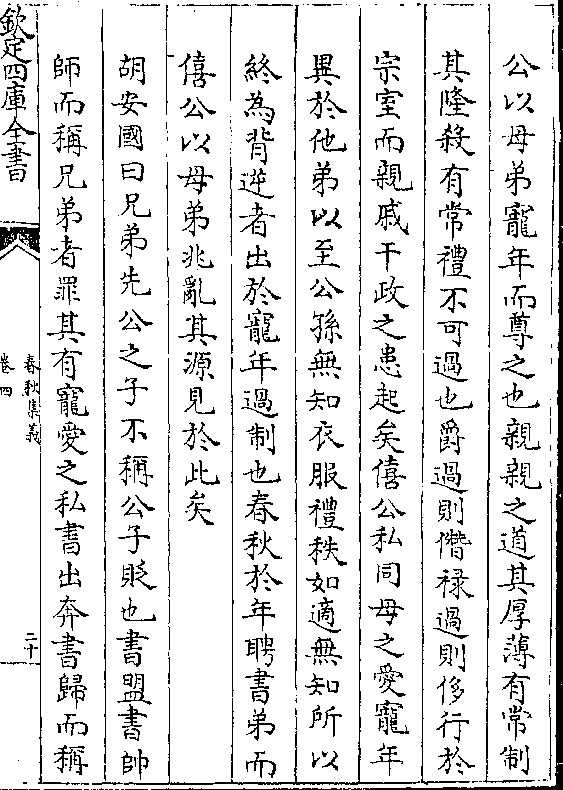 公以母弟寵年而尊之也親親之道其厚薄有常制
其隆殺有常禮不可過也爵過則僭祿過則侈行於
宗室而親戚干政之患起矣僖公私同母之愛寵年
異於他弟以至公孫無知衣服禮秩如適無知所以
終為背逆者出於寵年過制也春秋於年聘書弟而
僖公以母弟兆亂其源見於此矣
胡安國曰兄弟先公之子不稱公子貶也書盟書帥
師而稱兄弟者罪其有寵愛之私書出奔書歸而稱
欽定四庫全書
春秋集義
卷四
二十